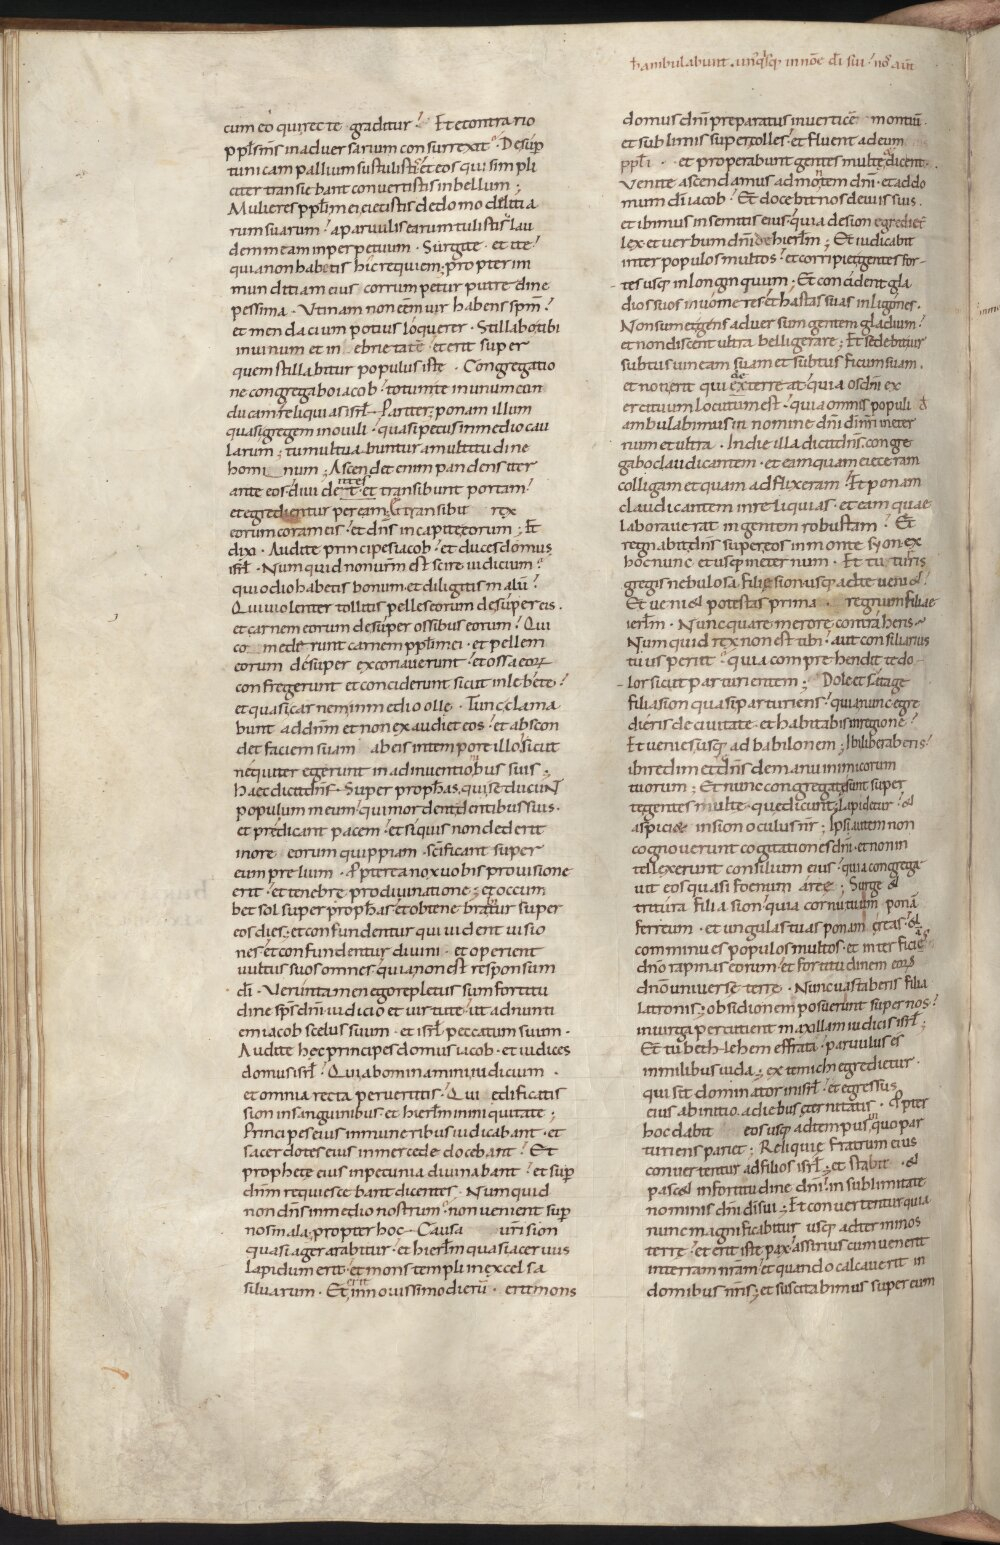 ħ ambulabunt. unꝰqsq; in noē dī sui. nos aūt
cum eo qui recte graditur? Et econtrario
ppls̄ ms̄ in adversarium consurrexit. Desup
tunicam pallium sustulistis. et eos qui simpli
citer transiebant convertistis in bellum;
Mulieres ppl̄i mei eiecistis de domo delitia
rum suarum? a parvulis earum tulistis lau
dem meam in perpetuum. Surgite. et ite?
quia non habetis hic requiem; propter in
munditiam eius corrumpetur putredine
pessima. Utinam non eēm vir habens spm̄?
et mendacium potius loquerer. Stillabo tibi
in vinum et in ebrietatē. et erit super
quem stillabitur populus iste. Congregatio
ne congregabo iacob. totum te in unum con
ducam reliquias isrl̄. Pariter ponam illum
quasi gregem in ovili. quasi pecus in medio cau
larum; tumultuabuntur a multitudine
hominum; Ascendet enim pandens iter
ante eos. divident et transibunt portam?
et egredientur per eam; & transibit rex
eorum coram eis. et dn̄s in capite eorum; Et
dixi. Audite principes iacob. et duces domus
isrl̄. Numquid non vr̄m est scire iudicium?
qui odio habetis bonum. et diligitis malū?
Qui violenter tollitis pelles eorum desuper eis.
et carnem eorum desuper ossibus eorum? Qui
comederunt carnem ppl̄i mei. et pellem
eorum desuper excoriaverunt. et ossa eoꝝ
confregerunt et conciderunt sicut in lebete?
et quasi carnem in medio olle. Tunc clama
bunt ad dn̄m et non exaudiet eos. et abscon
det faciem suam ab eis in tempore illo. sicut
nequiter egerunt in adinventionibus suis;
Haec dicit dn̄s. Super prophas. qui seducunt
populum meum. qui mordent dentibus suis.
et predicant pacem. et siquis non dederit
in ore eorum quippiam. scīficant super
eum prelium. Ppterea nox vobis pro visione
erit. et tenebre pro divinatione; & occum
bet sol super prophas. et obtenebrabitur super
eos dies. et confundentur qui vident visio
nes. et confundentur divini. et operient
vultus suos omnes. quia non est responsum
dī. Veruntamen ego repletus sum fortitu
dine sps̄ dn̄i iudicio et virtute. ut adnunti
em iacob scelus suum. et isrl̄ peccatum suum.
Audite hęc principes domus iacob. et iudices
domus isrl̄? Qui abominamini iudicium.
et omnia recta pervertitis. Qui edificatis
sion in sanguinibus. et hierl̄m in iniquitate;
Principes eius in muneribus iudicabant. et
sacerdotes eius in mercede docebant? Et
prophetę eius in pecunia divinabant. et sup
dn̄m requiescebant dicentes. Numquid
non dn̄s in medio nostrum. non venient sup
nos mala. propter hoc. Causa vr̄i sion
quasi ager arabitur. et hierl̄m quasi acervus
lapidum erit. et mons templi in excelsa
silvarum. Et erit in novissimo dierū. erit mons
domus dn̄i preparatus in vertice montiū.
et sublimis super colles. et fluent ad eum
ppl̄i. et properabunt gentes multę. & dicent.
Venite ascendamus ad montem dn̄i. et ad do
mum dī iacob. Et docebit nos de viis suis.
et ibimus in semitis eius. quia de sion egrediet
lex et verbum dn̄i de hierl̄m; Et iudicabit
inter populos multos. et corripiet gentes for-
tes usq; in longinquum; Et concident gla
dios suos in vomeres. et hastas suas in ligones.
Non sumet gens adversum gentem gladium?
et non discent ultra belligerare; Et sedebitur
subtus vineam suam et subtus ficum suam.
et non erit qui deterreat. quia os dn̄i ex
ercituum locutum est. quia omnis populi
ambulabimus in nomine dn̄i dī nr̄i in eter
num et ultra. In die illa dicit dn̄s. congre
gabo claudicantem. et eam quam eieceram
colligam et quam adflixeram? Et ponam
claudicantem in reliquias. et eam quae
laboraverat in gentem robustam? Et
regnabit dn̄s super eos in monte syon. ex
hoc nunc et usq; in eternum. Et tu turris
gregis nebulosa filie sion usq; ad te veni&?
Et veni& potestas prima regnum filiae
ierl̄m. Nunc quare merore contraheris.
Numquid rex non est tibi. aut consiliarius
tuus periit. quia comprehendit te do-
lor sicut parturientem; Dole et satage
filia sion quasi parturiens. quia nunc egre
dieris de civitate. et habitabis in regione?
Et venies usq; ad babilonem; Ibi liberaberis.
ibi redimet te dn̄s de manu inimicorum
tuorum; Et nunc congregatę sunt super
te gentes multe. que dicunt; Lapidetur. &
aspicia& in sion oculus nr̄; Ipsi autem non
cognoverunt cogitationes dn̄i. et non in
tellexerunt consilium eius. quia congrega
vit eos quasi foenum aree; Surge &
tritura filia sion. quia cornu tuum ponā
ferreum. et ungulas tuas ponam ereas. &
comminues populos multos. et interficies
dn̄o rapinas eorum. et fortitudinem eorū
dn̄o universe terre. Nunc vastaberis filia
latronis; obsidionem posuerunt super nos?
in virga percutient maxillam iudicis isrl̄;
Et tu beth-lehem effrata. parvulus es
in milibus iuda; ex te mich egredietur.
qui sit dominator in isrl̄. et egressus
eius ab initio. a diebus ęternitatis. Ppter
hoc dabit eos usq; ad tempus. in quo par
turiens pariet; Reliquię fratrum eius
convertentur ad filios isrl̄; et stabit. &
pasc& in fortitudine dn̄i. in sublimitate
nominis dn̄i dī sui; Et convertentur quia
nunc magnificabitur usq; ad terminos
terrę. et erit iste pax. assirius cum venerit
in terram nr̄am. et quando calcaverit in
domibus nr̄is; et suscitabimus super eum